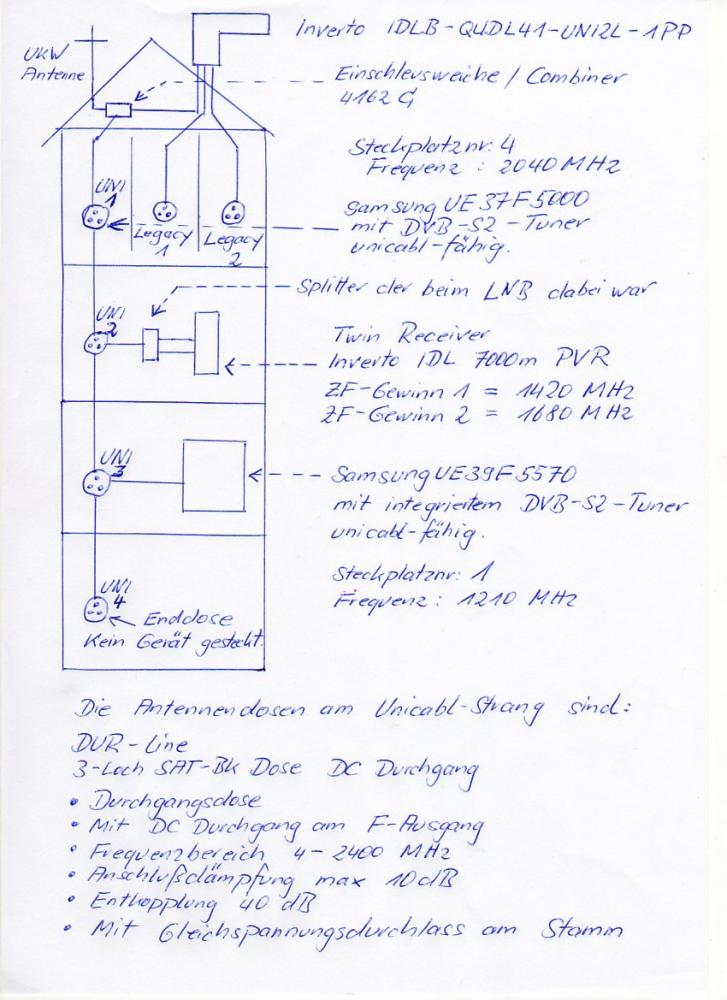 Inverto IDLB-QUDL41-UNI2L-1PP
UKW
Antenne
Einschleusweiche / Combiner
4162 G
Steckplatznr: 4
Frequenz : 2040 MHz
UNI
1
Legacy
1
Legacy
2
Samsung UE37F5000
mit DVB-S2-Tuner
unicabl-fähig.
Splitter der beim LNB dabei war
UNI
2
Twin Receiver
Inverto IDL 7000m PVR
ZF-Gewinn 1 = 1420 MHz
ZF-Gewinn 2 = 1680 MHz
UNI
3
Samsung UE39F5570
mit integriertem DVB-S2-Tuner
unicabl-fähig.
Steckplatznr: 1
Frequenz : 1210 MHz
UNI
4
Enddose
Kein Gerät gesteckt.
Die Antennendosen am Unicabl-Strang sind:
DUR-Line
3-Loch SAT-BK Dose DC Durchgang
• Durchgangsdose
• Mit DC Durchgang am F-Ausgang
• Frequenzbereich 4-2400 MHz
• Anschlußdämpfung max 10dB
• Enthopplung 40 dB
• Mit Gleichspannungsdurchlass am Stamm